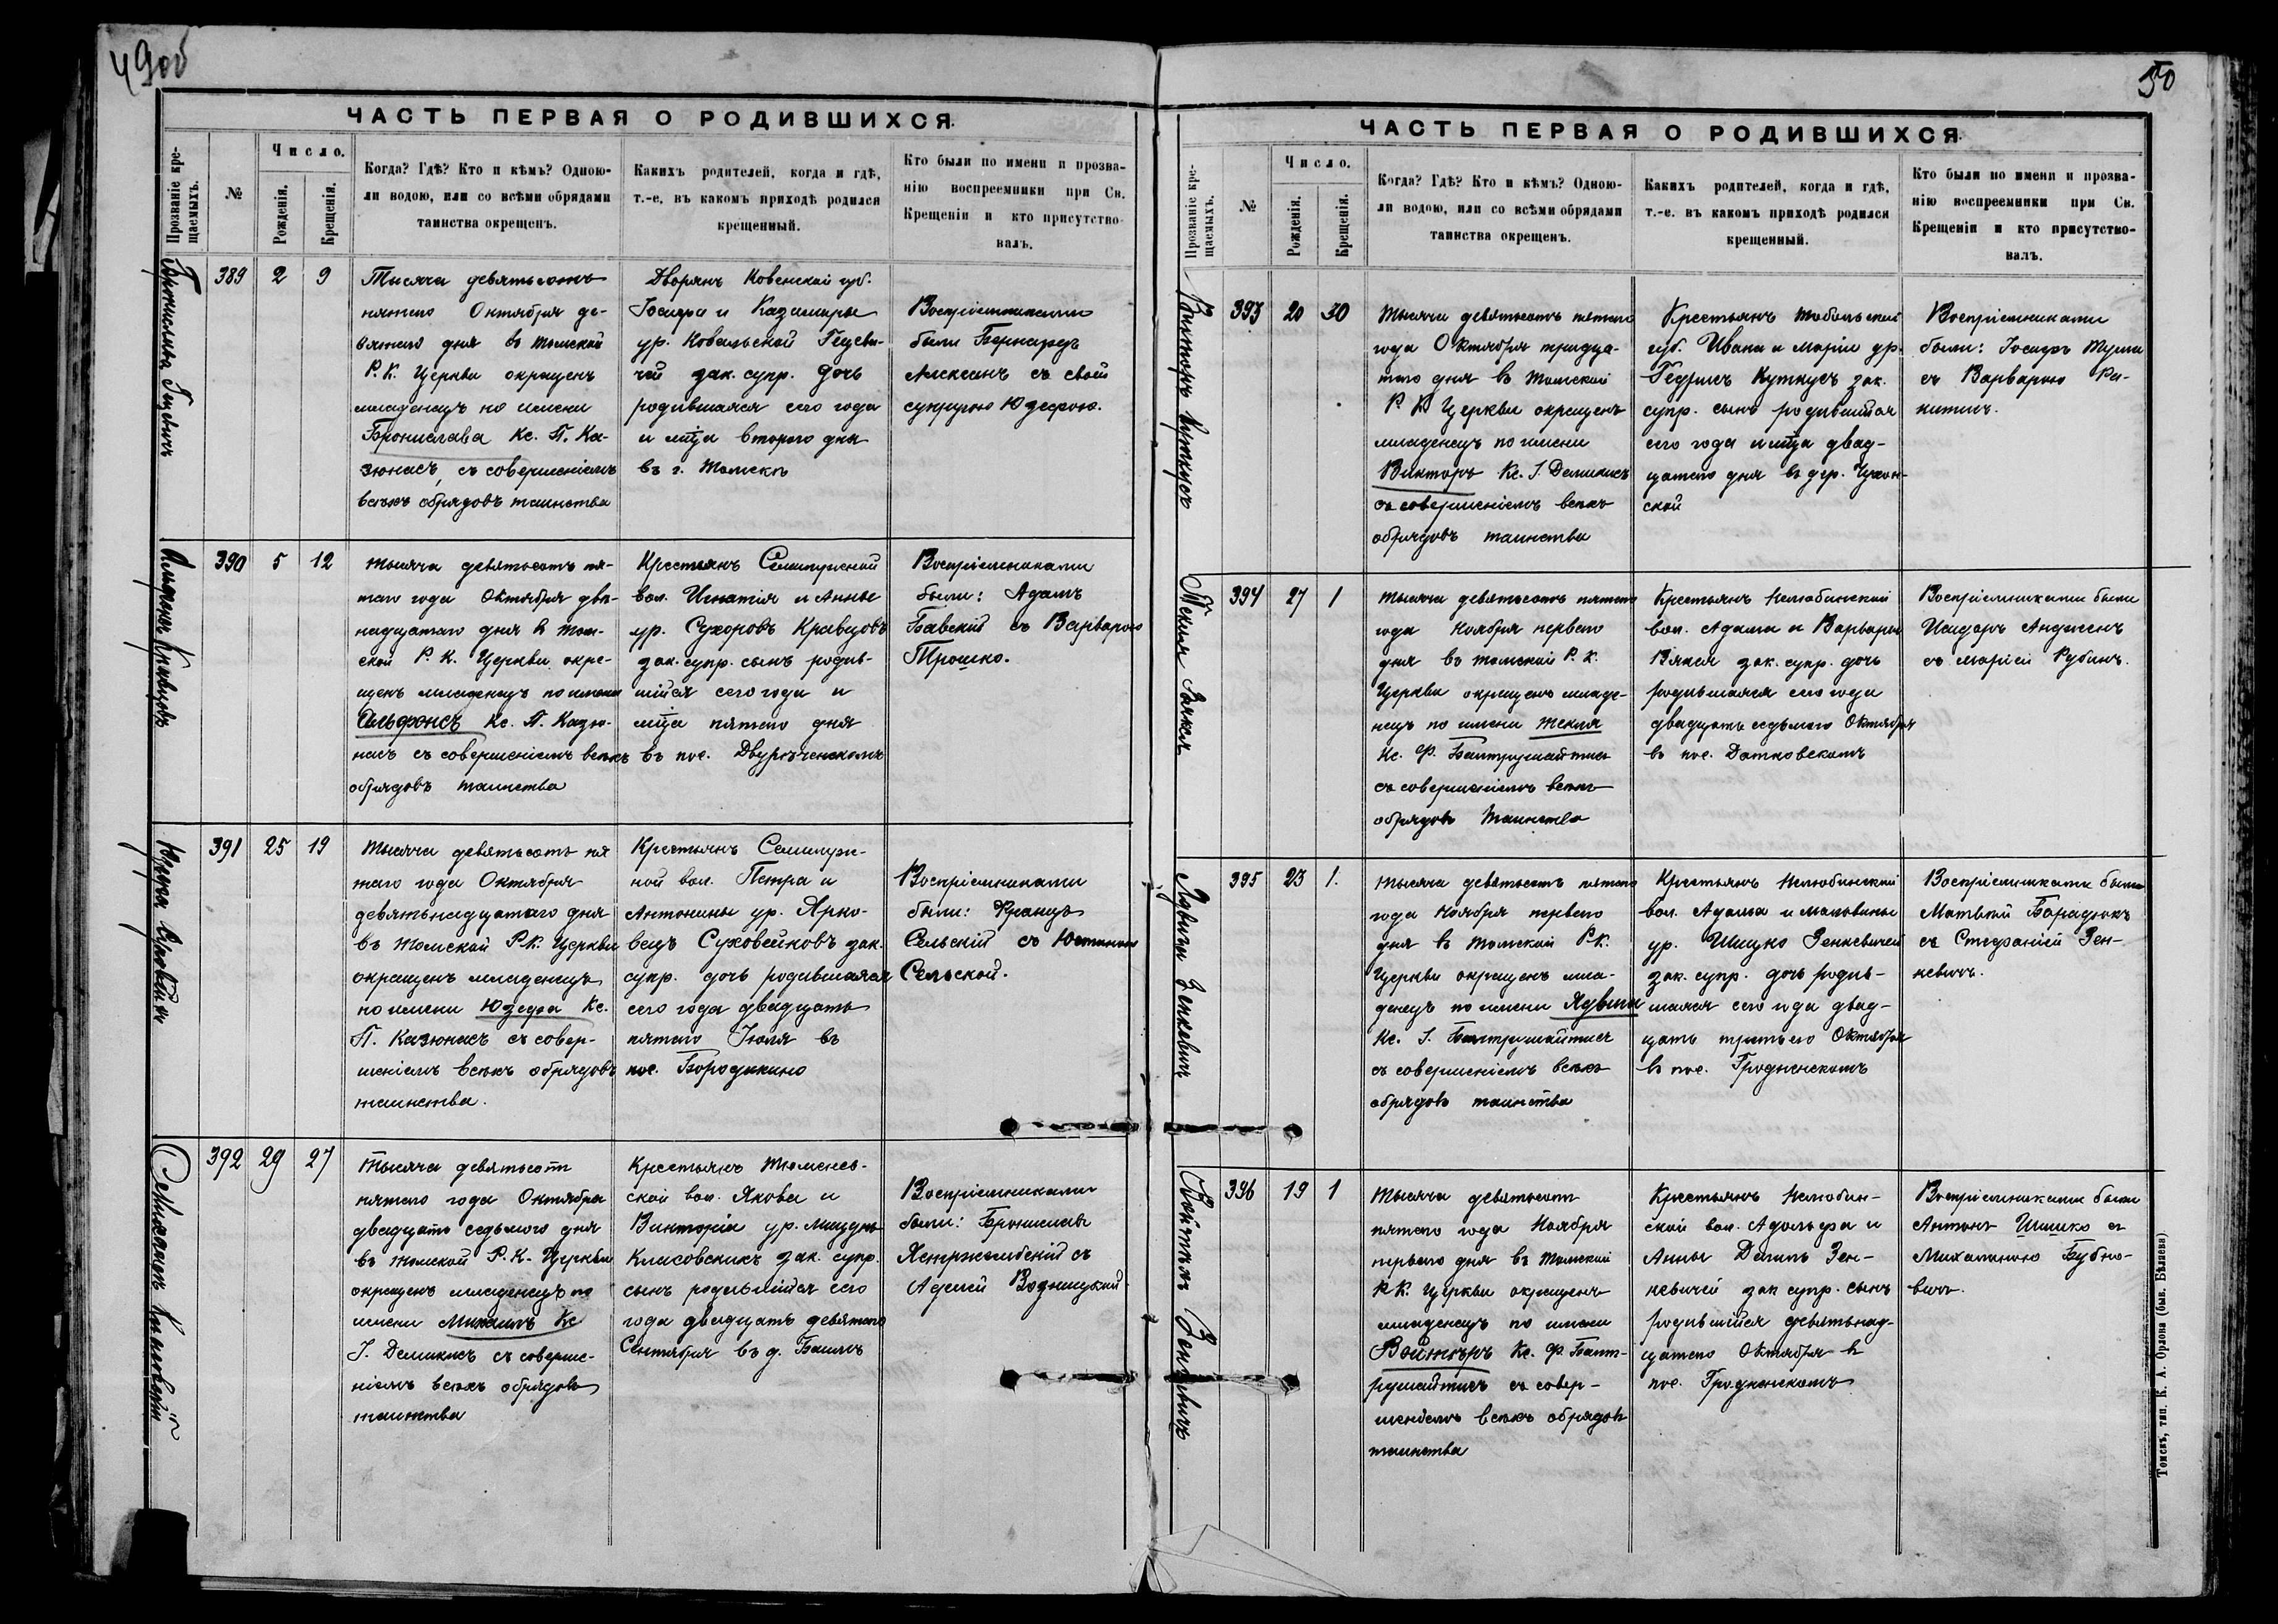 49об
ЧАСТЬ ПЕРВАЯ О РОДИВШИХСЯ.
Прозваніе кре-
щаемыхъ.
№
Число.
Рожденія.
Крещенія.
Когда? Гдѣ? Кто и кѣмъ? Одною-
ли водою, или со всѣми обрядами
таинства окрещенъ.
Какихъ родителей, когда и гдѣ,
т.-е. въ какомъ приходѣ родился
крещенный.
Кто были по имени и прозва-
нію воспреемники при Св.
Крещеніи и кто присутство-
валъ.
389
2
9
Тысяча девятьсотъ
пятого Октября де-
вятого дня въ Томской
Р. К. Церкви окрещенъ
младенецъ по имени
Бронислава Кс. П. Ка-
зюнасъ, съ совершеніемъ
всѣхъ обрядовъ таинства
Дворянъ Ковенской губ.
Іосифа и Казимиры
ур. Ковальской Гецеви-
чей зак. супр. дочь
родившаяся сего года
и мѣца второго дня
въ г. Томскѣ
Воспріемниками
были Бернардъ
съ своей
супругою Юзефою.
Альфонсъ Кравцовъ
390
5
12
Тысяча девятьсотъ пя-
таго года Октября две-
надцатаго дня въ Том-
ской Р. К. Церкви окре-
щенъ младенецъ по имени
Альфонсъ Кс. П. Казю-
насъ съ совершеніемъ всѣхъ
обрядовъ таинства
Крестьянъ Семилужной
вол. Игнатія и Анны
ур. Сухоровъ Кравцовъ
зак. супр. сынъ родив-
шійся сего года и
мѣца пятого дня
въ пос. Двурѣченскомъ
Воспріемниками
были: Адамъ
Бавскій съ Варварою
Трошко.
391
25
19
Тысяча девятьсотъ пя
таго года Октября
девятьнадцатаго дня
въ Томской Р.К. Церкви
окрещенъ младенецъ
по имени Юзефа Кс.
П. Казюнасъ съ совер-
шеніемъ всѣхъ обрядовъ
таинства.
Крестьянъ Семилуж-
ной вол. Петра и
Антонины ур. Ярко-
вецъ Суховейковъ зак.
супр. дочь родившаяся
сего года двадцать
пятого Іюля въ
пос. Бородинкино
Воспріемниками
были: Францъ
Сельскій съ Юстиною
Сельской.
392
29
27
Тысяча девятьсотъ
пятого года Октября
двадцать седьмого дня
въ Томской Р. К. Церкви
окрещенъ младенецъ по
имени Михаилъ Кс
І. Демикисъ съ соверше-
ніемъ всѣхъ обрядовъ
таинства
Крестьянъ Тюменев-
ской вол. Якова и
Викторіи ур.
зак. супр.
сынъ родившійся сего
года двадцать девятого
Сентября въ д.
Воспріемниками
были: Брониславъ
Ястржембскій съ
Аделей Возницкой.
50
ЧАСТЬ ПЕРВАЯ О РОДИВШИХСЯ.
Прозваніе кре-
щаемыхъ.
№
Число.
Рожденія.
Крещенія.
Когда? Гдѣ? Кто и кѣмъ? Одною-
ли водою, или со всѣми обрядами
таинства окрещенъ.
Какихъ родителей, когда и гдѣ,
т.-е. въ какомъ приходѣ родился
крещенный.
Кто были по имени и прозва-
нію воспреемники при Св.
Крещеніи и кто присутство-
валъ.
Викторъ Куткусъ
393
20
30
Тысяча девятьсотъ пятого
года Октября тридца-
того дня въ Томской
Р. К. Церкви окрещенъ
младенецъ по имени
Викторъ Кс. І. Демикисъ
съ совершеніемъ всѣхъ
обрядовъ таинства
Крестьянъ Тобольской
губ. Ивана и Маріи ур.
Куткусъ зак.
супр. сынъ родившійся
сего года и мѣца двад-
цатого дня въ дер. Чухон-
ской
Воспріемниками
были: Іосифъ
съ Варварою
394
27
1
Тысяча девятьсотъ пятого
года Ноября перваго
дня въ Томской Р. К.
Церкви окрещенъ младе-
нецъ по имени Текля
Кс. Ф. Балтрушайтисъ
съ совершеніемъ всѣхъ
обрядовъ таинства
Крестьянъ Нелюбинской
вол. Адама и Варвары
зак. супр. дочь
родившаяся сего года
двадцать седьмого Октября
въ пос. Датковскомъ
Воспріемниками были
Исидоръ
съ Маріей Рубинъ.
Ядвига Зенкевичъ
395
23
1.
Тысяча девятьсотъ пятого
года Ноября перваго
дня въ Томской Р.К.
Церкви окрещенъ мла-
денецъ по имени Ядвига
Кс. І. Балтрушайтисъ
съ совершеніемъ всѣхъ
обрядовъ таинства
Крестьянъ Нелюбинской
вол. Адама и Мальвины
ур. Шишко Зенкевичей
зак. супр. дочь родив-
шаяся сего года двад-
цать третьего Октября
въ пос. Гродненскомъ
Воспріемниками были
Матвѣй
съ Стефаніей Зен-
кевичъ.
Войтѣхъ Зенкевичъ
396
19
1
Тысяча девятьсотъ
пятого года Ноября
перваго дня въ Томской
Р.К. Церкви окрещенъ
младенецъ по имени
Войтѣхъ Кс. Ф. Балт-
рушайтисъ съ совер-
шеніемъ всѣхъ обрядовъ
таинства
Крестьянъ Нелюбин-
ской вол. Адольфа и
Анны Зен-
кевичей зак супр. сынъ
родившійся девятьнад-
цатого Октября въ
пос. Гродненскомъ
Воспріемниками были
Антонъ Шишко съ
Михалиною
Томскъ, тип. К. А. Орлова (быв. Бѣляева)